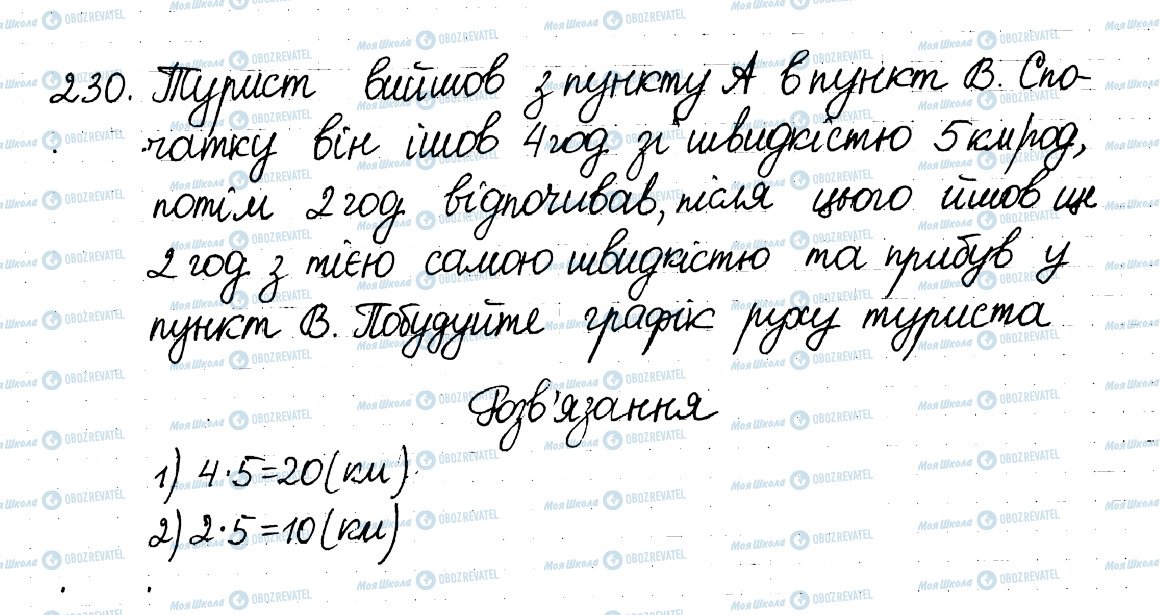 230. Турист вийшов з пункту А в пункт В. Спо-
чатку він ішов 4 год зі швидкістю 5 км/год,
потім 2 год відпочивав, після цього йшов ще
2 год з тією самою швидкістю та прибув у
пункт В. Побудуйте графік руху туриста
Розв'язання
1) 4·5=20(км)
2) 2·5=10(км)